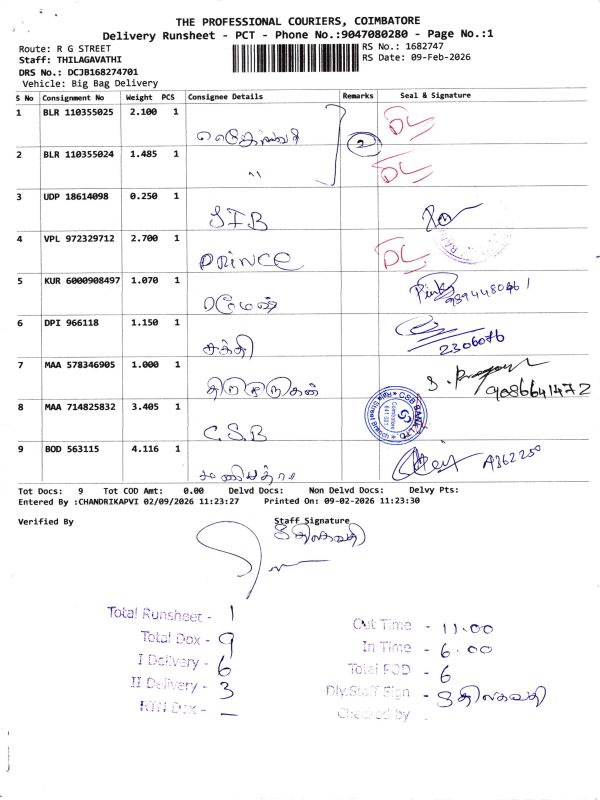 THE PROFESSIONAL COURIERS, COIMBATORE
Delivery Runsheet - PCT - Phone No.:9047080280 - Page No.:1
Route: R G STREET
RS No.: 1682747
Staff: THILAGAVATHI
RS Date: 09-Feb-2026
DRS No.: DCJB168274701
Vehicle: Big Bag Delivery
S No Consignment No Weight PCS Consignee Details Remarks Seal & Signature
1 BLR 110355025 2.100 1 DL
2
2 BLR 110355024 1.485 1 " DL
3 UDP 18614098 0.250 1 SIB
4 VPL 972329712 2.700 1 PRINCE DL
5 KUR 6000908497 1.070 1 ரமேஷ்
6 DPI 966118 1.150 1 சக்தி 2306076
7 MAA 578346905 1.000 1 9086641472
8 MAA 714825832 3.405 1 C.S.B CSB BANK LTD
9 BOD 563115 4.116 1 A362250
Tot Docs: 9 Tot COD Amt: 0.00 Delvd Docs: Non Delvd Docs: Delvy Pts:
Entered By :CHANDRIKAPVI 02/09/2026 11:23:27 Printed On: 09-02-2026 11:23:30
Verified By Staff Signature
திலகவதி
Total Runsheet - 1
Total Dox - 9
I Delivery - 6
II Delivery - 3
RTN Dox - –
Out Time - 11.00
In Time - 6.00
Total POD - 6
Dly.Staff Sign - திலகவதி
Checked by